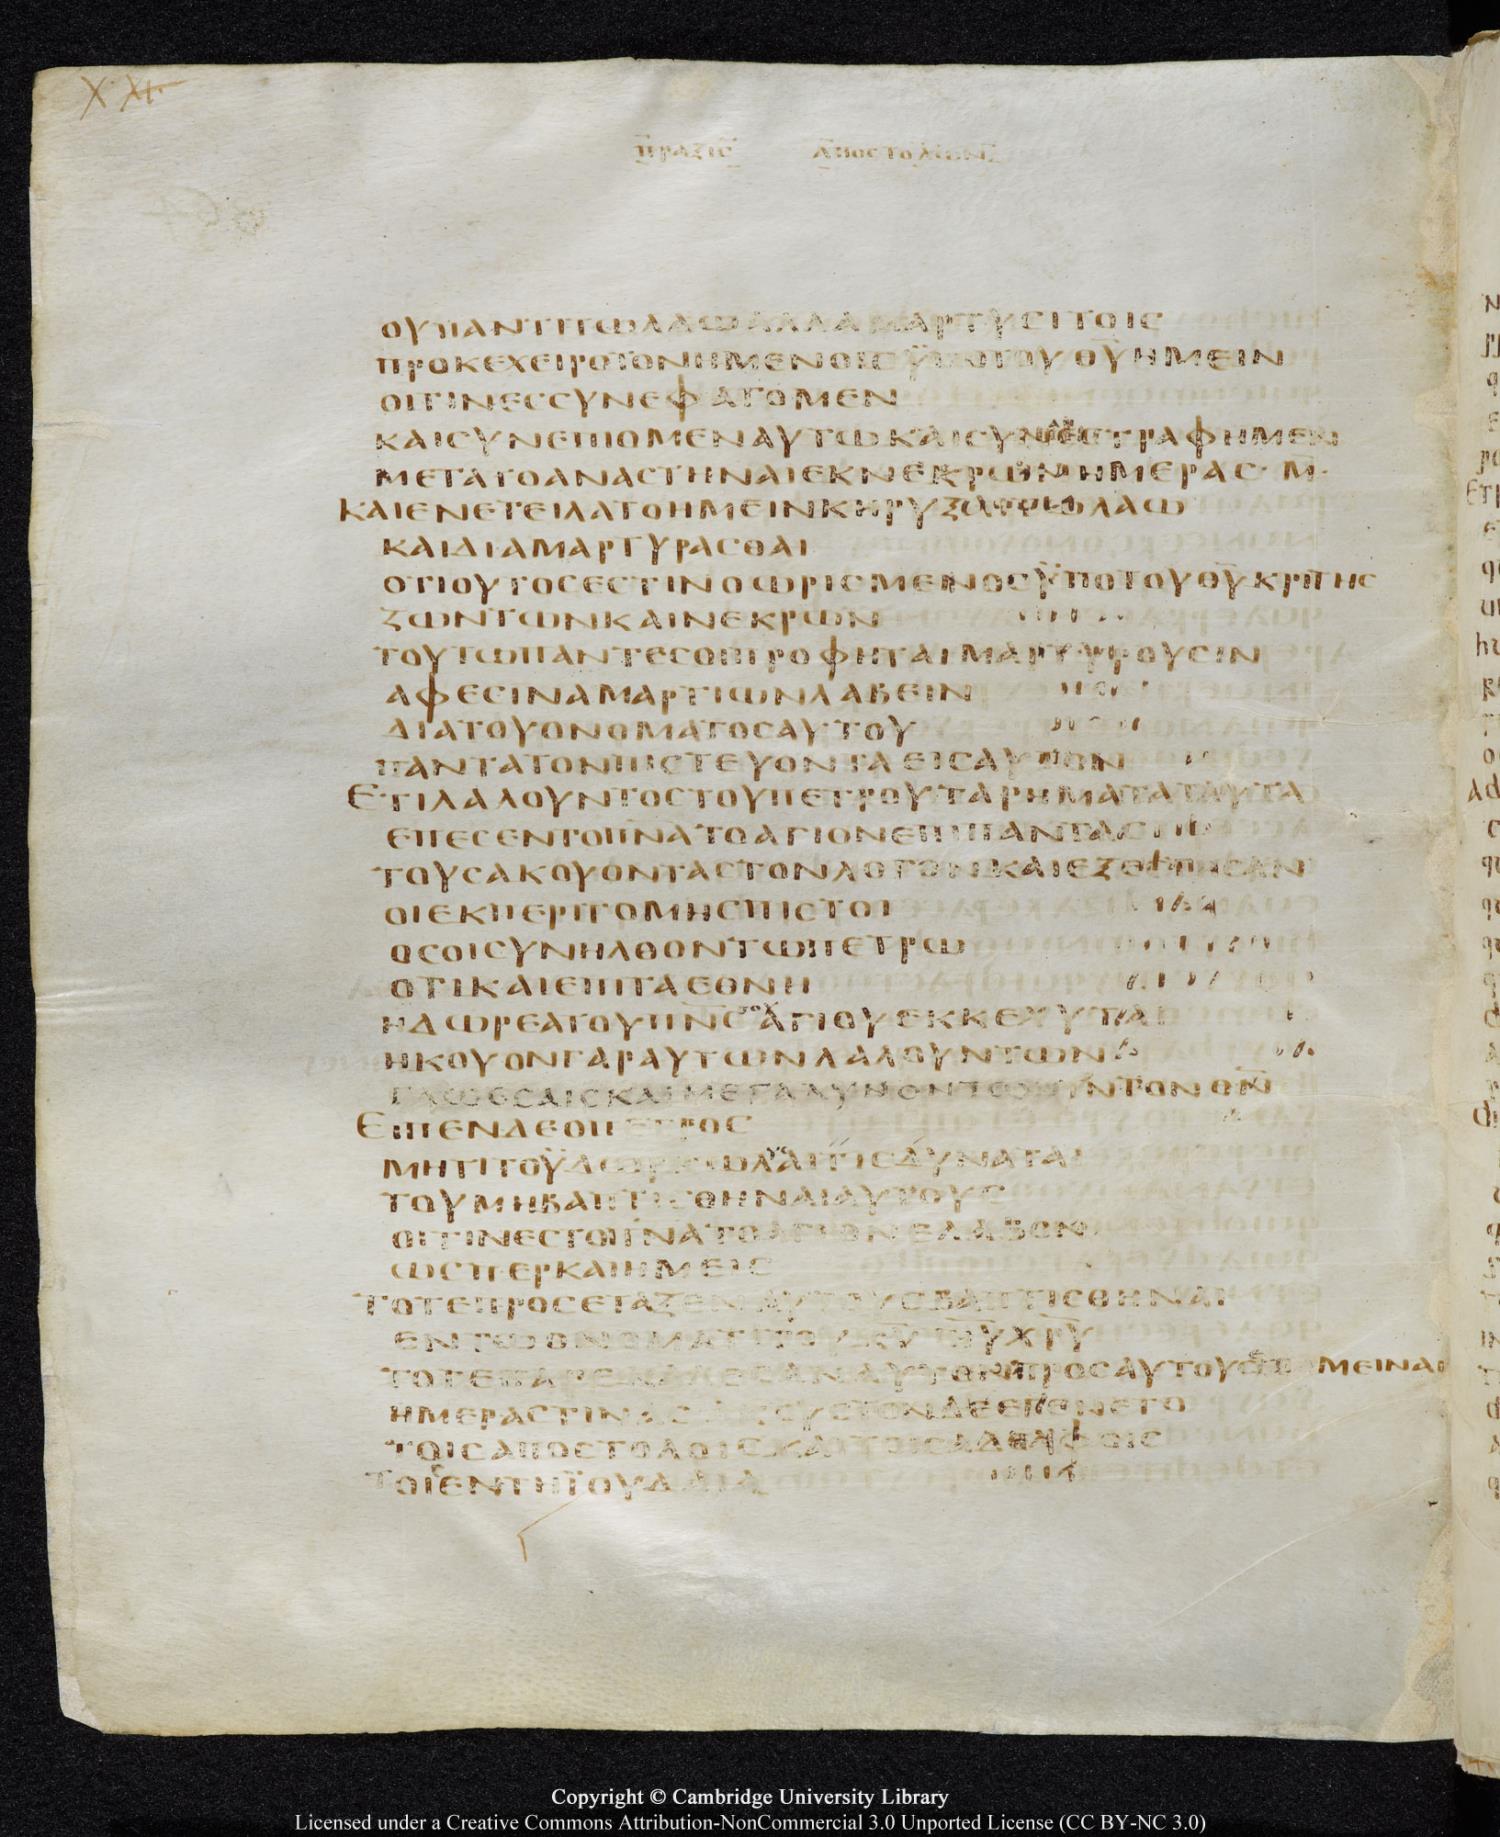 X XI
ΠΡΑΞΙΣ ΑΠΟΣΤΟΛΩΝ
ΟΥΠΑΝΤΙΤΩΛΑΩΑΛΛΑΜΑΡΤΥΣΙΤΟΙΣ
ΠΡΟΚΕΧΕΙΡΟΤΟΝΗΜΕΝΟΙΣΫΠΟΤΟΥΘΥΗΜΕΙΝ
ΟΙΤΙΝΕΣΣΥΝΕΦΑΓΟΜΕΝ
ΚΑΙΣΥΝΕΠΙΟΜΕΝΑΥΤΩΚΑΙΣΥΝ
ΜΕΤΑΤΟΑΝΑΣΤΗΝΑΙΕΚΝΕΚΡΩΝΗΜΕΡΑΣ·Μ·
ΚΑΙΕΝΕΤΕΙΛΑΤΟΗΜΕΙΝΚΗΡΥΞΑΙΤΩΛΑΩ
ΚΑΙΔΙΑΜΑΡΤΥΡΑΣΘΑΙ
ΟΤΙΟΥΤΟΣΕΣΤΙΝΟΩΡΙΣΜΕΝΟΣΫΠΟΤΟΥΘΥΚΡΙΤΗΣ
ΖΩΝΤΩΝΚΑΙΝΕΚΡΩΝ
ΤΟΥΤΩΠΑΝΤΕΣΟΙΠΡΟΦΗΤΑΙΜΑΡΤΥΡΟΥΣΙΝ
ΑΦΕΣΙΝΑΜΑΡΤΙΩΝΛΑΒΕΙΝ
ΔΙΑΤΟΥΟΝΟΜΑΤΟΣΑΥΤΟΥ
ΠΑΝΤΑΤΟΝΠΙΣΤΕΥΟΝΤΑΕΙΣΑΥΤΟΝ
ΕΤΙΛΑΛΟΥΝΤΟΣΤΟΥΠΕΤΡΟΥΤΑΡΗΜΑΤΑΤΑΥΤΑ
ΕΠΕΣΕΝΤΟΠΝΑΤΟΑΓΙΟΝΕΠΙΠΑΝΤΑΣ
ΤΟΥΣΑΚΟΥΟΝΤΑΣΤΟΝΛΟΓΟΝΚΑΙΕΞΕΣΤΗΣΑΝ
ΟΙΕΚΠΕΡΙΤΟΜΗΣΠΙΣΤΟΙ
ΟΣΟΙΣΥΝΗΛΘΟΝΤΩΠΕΤΡΩ
ΟΤΙΚΑΙΕΠΙΤΑΕΘΝΗ
ΗΔΩΡΕΑΤΟΥΠΝΣΑΓΙΟΥΕΚΚΕΧΥΤΑΙ
ΗΚΟΥΟΝΓΑΡΑΥΤΩΝΛΑΛΟΥΝΤΩΝ
ΕΙΠΕΝΔΕΟΠΕΤΡΟΣ
ΤΟΥΜΗΒΑΠΤΙΣΘΗΝΑΙΑΥΤΟΥΣ
ΟΙΤΙΝΕΣΤΟΠΝΑΤΟΑΓΙΟΝΕΛΑΒΟΝ
ΩΣΠΕΡΚΑΙΗΜΕΙΣ
ΤΟΤΕΠΡΟΣΕΤΑΞΕΝΑΥΤΟΥΣΒΑΠΤΙΣΘΗΝΑΙ
ΕΝΤΩΟΝΟΜΑΤΙΤΟΥΚΥΙΗΥΧΡΥ
ΤΟΤΕΠΑΡΕΚΑΛΕΣΑΝΑΥΤΟΝΠΡΟΣΑΥΤΟΥΣ ΜΕΙΝΑΙ
ΗΜΕΡΑΣΤΙΝΑΣ
ΤΟΙΣΑΠΟΣΤΟΛΟΙΣΚΑΙΤΟΙΣΑΔΕΛΦΟΙΣ
ΤΟΙΣΕΝΤΗΪΟΥΔΑΙΑ
Copyright © Cambridge University Library
Licensed under a Creative Commons Attribution-NonCommercial 3.0 Unported License (CC BY-NC 3.0)